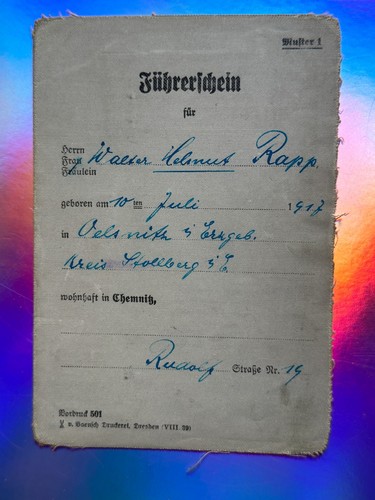 Muster 1
Führerschein
für
Herrn
Frau Walter Helmut Rapp.
Fräulein
geboren am 10ten Juli 1917
in Oelsnitz i Erzgeb.
Kreis Stollberg i/E
wohnhaft in Chemnitz,
Rudolf Straße Nr. 19
Vordruck 501
v. Baensch Druckerei, Dresden (VIII 39)